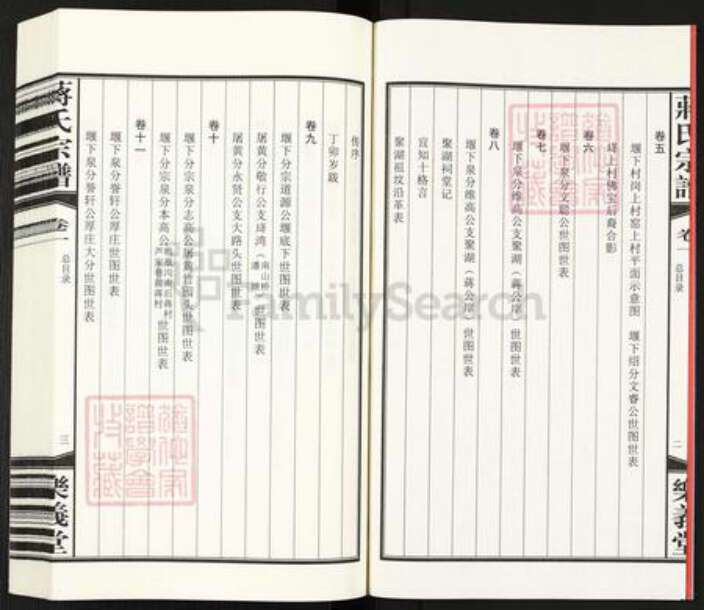 蔣氏宗譜
卷一
总目录
二
樂義堂
卷五
堰下村岗上村窑上村平面示意图 堰下绍分文睿公世图世表
绎上村佛宝后裔合影
卷六
堰下泉分文聪公世图世表
卷七
堰下泉分维高公支聚湖（蒋公岸）世图世表
卷八
堰下泉分维高公支聚湖（蒋公岸）世图世表
聚湖祠堂记
宣知十格言
聚湖祖坟沿革表
传序
丁卯岁跋
卷九
堰下分宗道源公堰底下世图世表
居黄分敬行公支绎湾（南山桥 潘 ）世图世表
居黄分永贤公支大路头世图世表
卷十
堰下分宗泉分志高公居黄竹园头世图世表
堰下分宗泉分本高公 严家巷前蒋村 世图世表
卷十一
堰下泉分誉轩公厚庄世图世表
堰下泉分誉轩公厚庄大分世图世表
蔣氏宗譜
卷一
总目录
三
樂義堂
FamilySearch